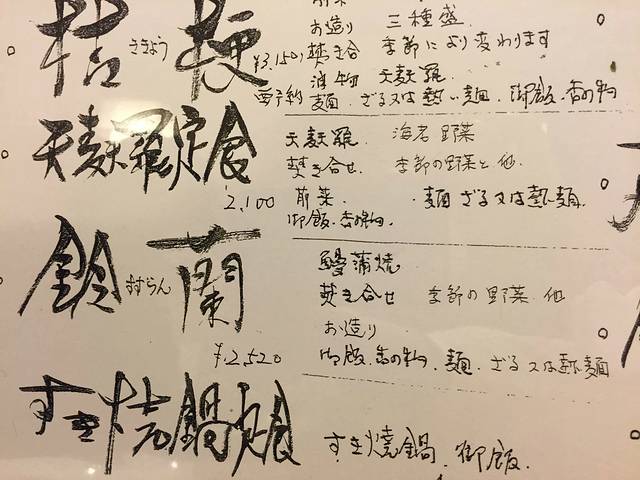 桔梗
ききょう
¥3.150
要予約
お造り 三種盛
焚き合 季節により変わります
油物 天麩羅
麺 ざる又は熱い麺 御飯 香の物
天麩羅定食
¥2,100
天麩羅 海老 野菜
焚き合せ 季節の野菜と他
前菜 麺 ざる又は熱い麺
御飯 香の物
鈴蘭
すずらん
¥2,520
鰻蒲焼
焚き合せ 季節の野菜 他
お造り
御飯 香の物 麺 ざる又は熱い麺
すき焼鍋定食
すき焼鍋 御飯